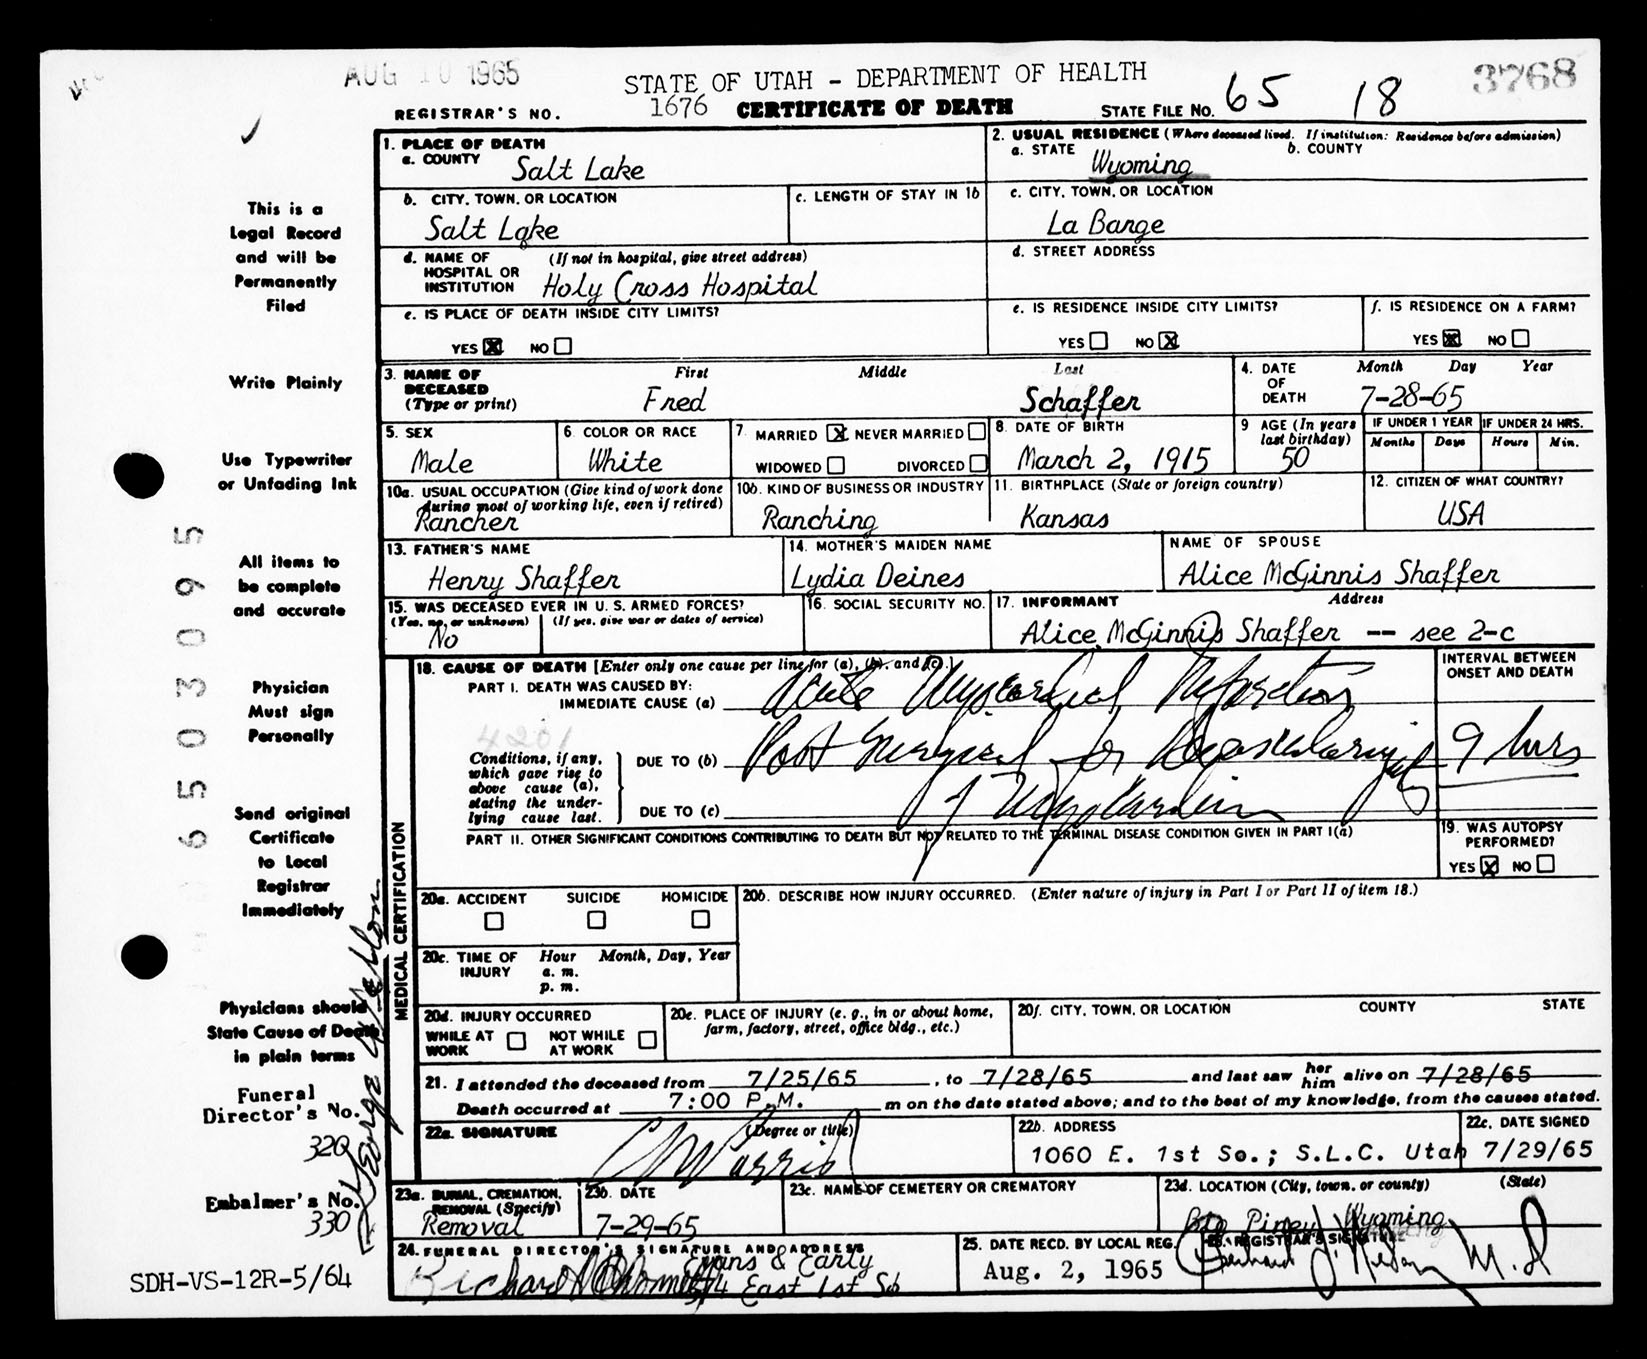 AUG 10 1965
STATE OF UTAH - DEPARTMENT OF HEALTH
3768
REGISTRAR'S NO. 1676 CERTIFICATE OF DEATH STATE FILE NO. 65 18
1. PLACE OF DEATH
a. COUNTY Salt Lake
2. USUAL RESIDENCE (Where deceased lived. If institution: Residence before admission)
a. STATE Wyoming b. COUNTY
b. CITY, TOWN, OR LOCATION Salt Lake
c. LENGTH OF STAY IN 1b
c. CITY, TOWN, OR LOCATION La Barge
d. NAME OF HOSPITAL OR INSTITUTION (If not in hospital, give street address) Holy Cross Hospital
d. STREET ADDRESS
e. IS PLACE OF DEATH INSIDE CITY LIMITS?
YES X NO
e. IS RESIDENCE INSIDE CITY LIMITS?
YES NO X
f. IS RESIDENCE ON A FARM?
YES X NO
3. NAME OF DECEASED (Type or print)
First Middle Last
Fred Schaffer
4. DATE OF DEATH Month Day Year
7-28-65
5. SEX Male
6. COLOR OR RACE White
7. MARRIED X NEVER MARRIED
WIDOWED DIVORCED
8. DATE OF BIRTH March 2, 1915
9 AGE (In years last birthday) 50
IF UNDER 1 YEAR Months Days
IF UNDER 24 HRS. Hours Min.
10a. USUAL OCCUPATION (Give kind of work done during most of working life, even if retired) Rancher
10b. KIND OF BUSINESS OR INDUSTRY Ranching
11. BIRTHPLACE (State or foreign country) Kansas
12. CITIZEN OF WHAT COUNTRY? USA
13. FATHER'S NAME Henry Shaffer
14. MOTHER'S MAIDEN NAME Lydia Deines
NAME OF SPOUSE Alice McGinnis Shaffer
15. WAS DECEASED EVER IN U. S. ARMED FORCES?
(Yes, no, or unknown) (If yes, give war or dates of service)
No
16. SOCIAL SECURITY NO.
17. INFORMANT Address
Alice McGinnis Shaffer -- see 2-c
18. CAUSE OF DEATH [Enter only one cause per line for (a), (b), and (c).]
PART I. DEATH WAS CAUSED BY:
IMMEDIATE CAUSE (a) Acute Myocardial Infarction
INTERVAL BETWEEN ONSET AND DEATH
4201
Conditions, if any, which gave rise to above cause (a), stating the underlying cause last.
DUE TO (b) Post Surgical for
9 hrs
DUE TO (c) of Myocardium
PART II. OTHER SIGNIFICANT CONDITIONS CONTRIBUTING TO DEATH BUT NOT RELATED TO THE TERMINAL DISEASE CONDITION GIVEN IN PART I(a)
19. WAS AUTOPSY PERFORMED?
YES X NO
MEDICAL CERTIFICATION
20a. ACCIDENT SUICIDE HOMICIDE
20b. DESCRIBE HOW INJURY OCCURRED. (Enter nature of injury in Part I or Part II of item 18.)
20c. TIME OF INJURY Hour Month, Day, Year
a. m.
p. m.
20d. INJURY OCCURRED
WHILE AT WORK NOT WHILE AT WORK
20e. PLACE OF INJURY (e. g., in or about home, farm, factory, street, office bldg., etc.)
20f. CITY, TOWN, OR LOCATION COUNTY STATE
21. I attended the deceased from 7/25/65, to 7/28/65 and last saw her him alive on 7/28/65
Death occurred at 7:00 P.M. m on the date stated above; and to the best of my knowledge, from the causes stated.
22a. SIGNATURE (Degree or title)
22b. ADDRESS
1060 E. 1st So.; S.L.C. Utah
22c. DATE SIGNED
7/29/65
23a. BURIAL, CREMATION, REMOVAL (Specify) Removal
23b. DATE 7-29-65
23c. NAME OF CEMETERY OR CREMATORY
23d. LOCATION (City, town, or county) (State)
Big Piney, Wyoming
24. FUNERAL DIRECTOR'S SIGNATURE AND ADDRESS
Evans & Early
574 East 1st So
25. DATE RECD. BY LOCAL REG.
Aug. 2, 1965
REGISTRAR'S SIGNATURE
M.D
This is a
Legal Record
and will be
Permanently
Filed
Write Plainly
Use Typewriter
or Unfading Ink
All items to
be complete
and accurate
Physician
Must sign
Personally
Send original
Certificate
to Local
Registrar
Immediately
Physicians should
State Cause of Death
in plain terms
Funeral
Director's No.
320
Embalmer's No.
330
SDH-VS-12R-5/64
65030955